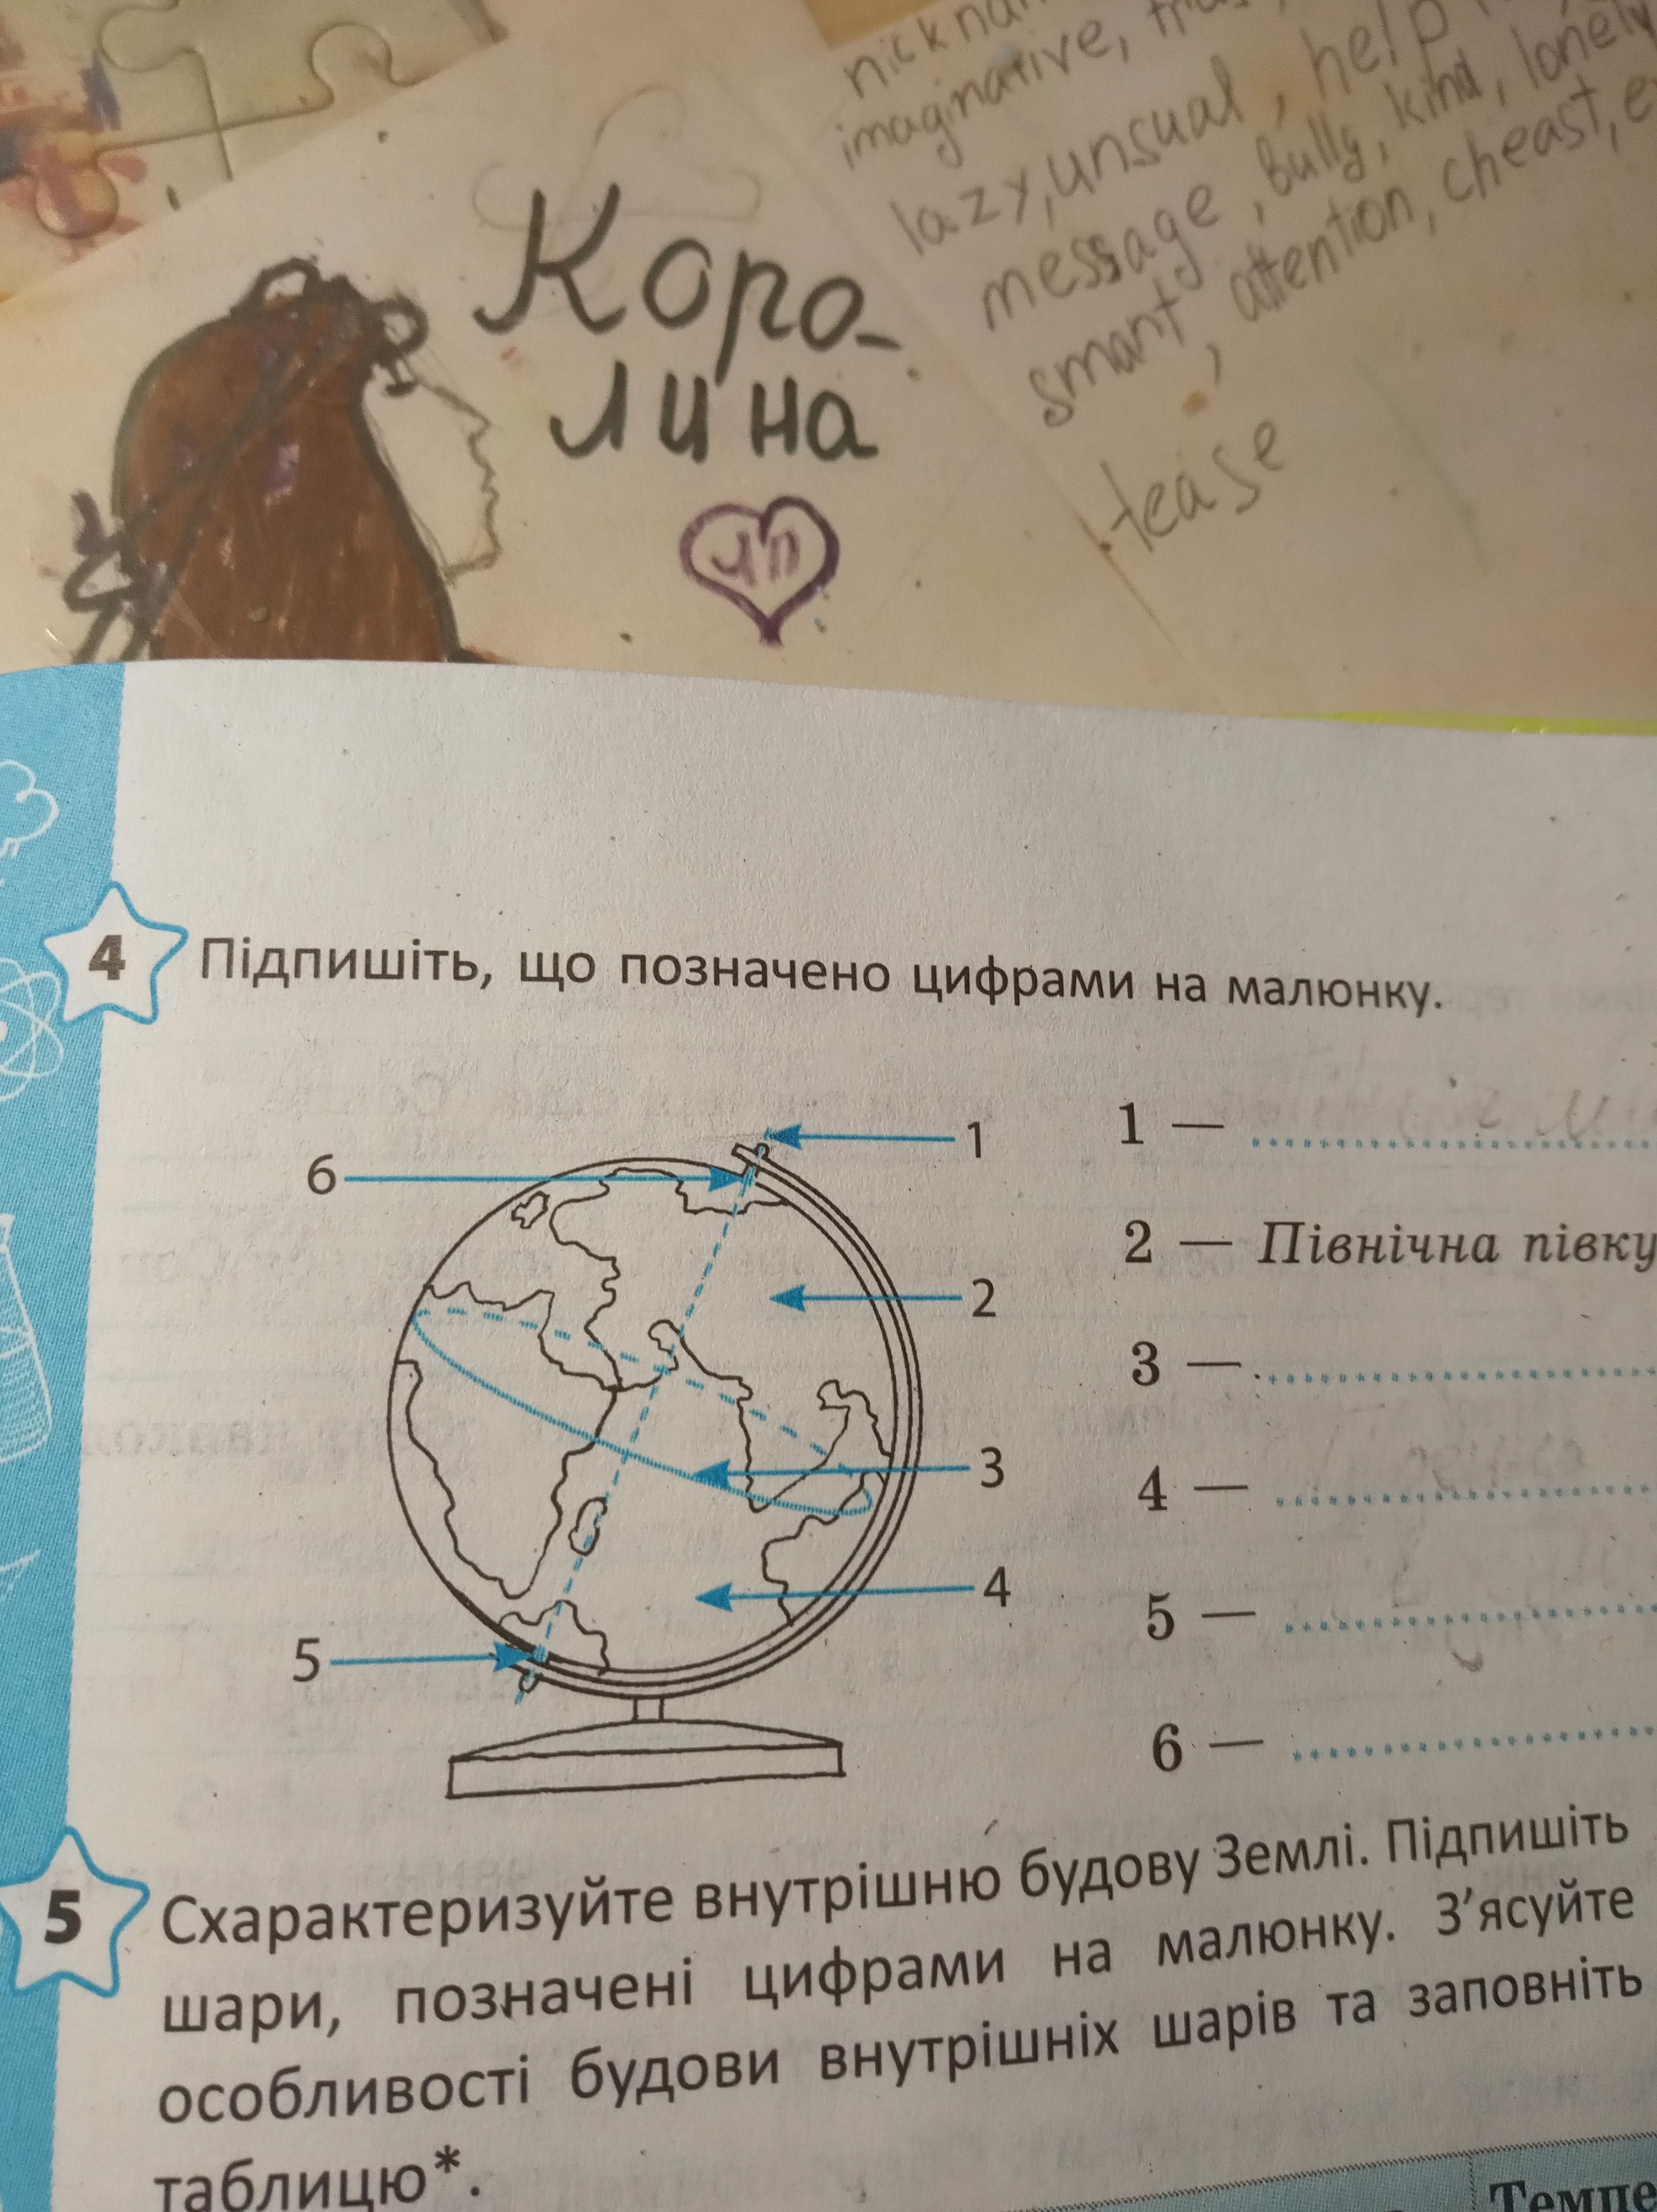 imaginative,
lazy, unsual, help
message, bully, kind, lonely
smart, attention, cheast,
tease
Каро-
лина
ЛП
4 Підпишіть, що позначено цифрами на малюнку.
6
1
2
3
4
5
1 —
2 — Північна півку
3 —
4 —
5 —
6 —
5 Схарактеризуйте внутрішню будову Землі. Підпишіть
шари, позначені цифрами на малюнку. З’ясуйте
особливості будови внутрішніх шарів та заповніть
таблицю*.
Темпе